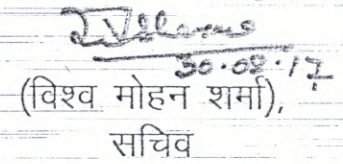 30.08.17
(विश्व मोहन शर्मा),
सचिव